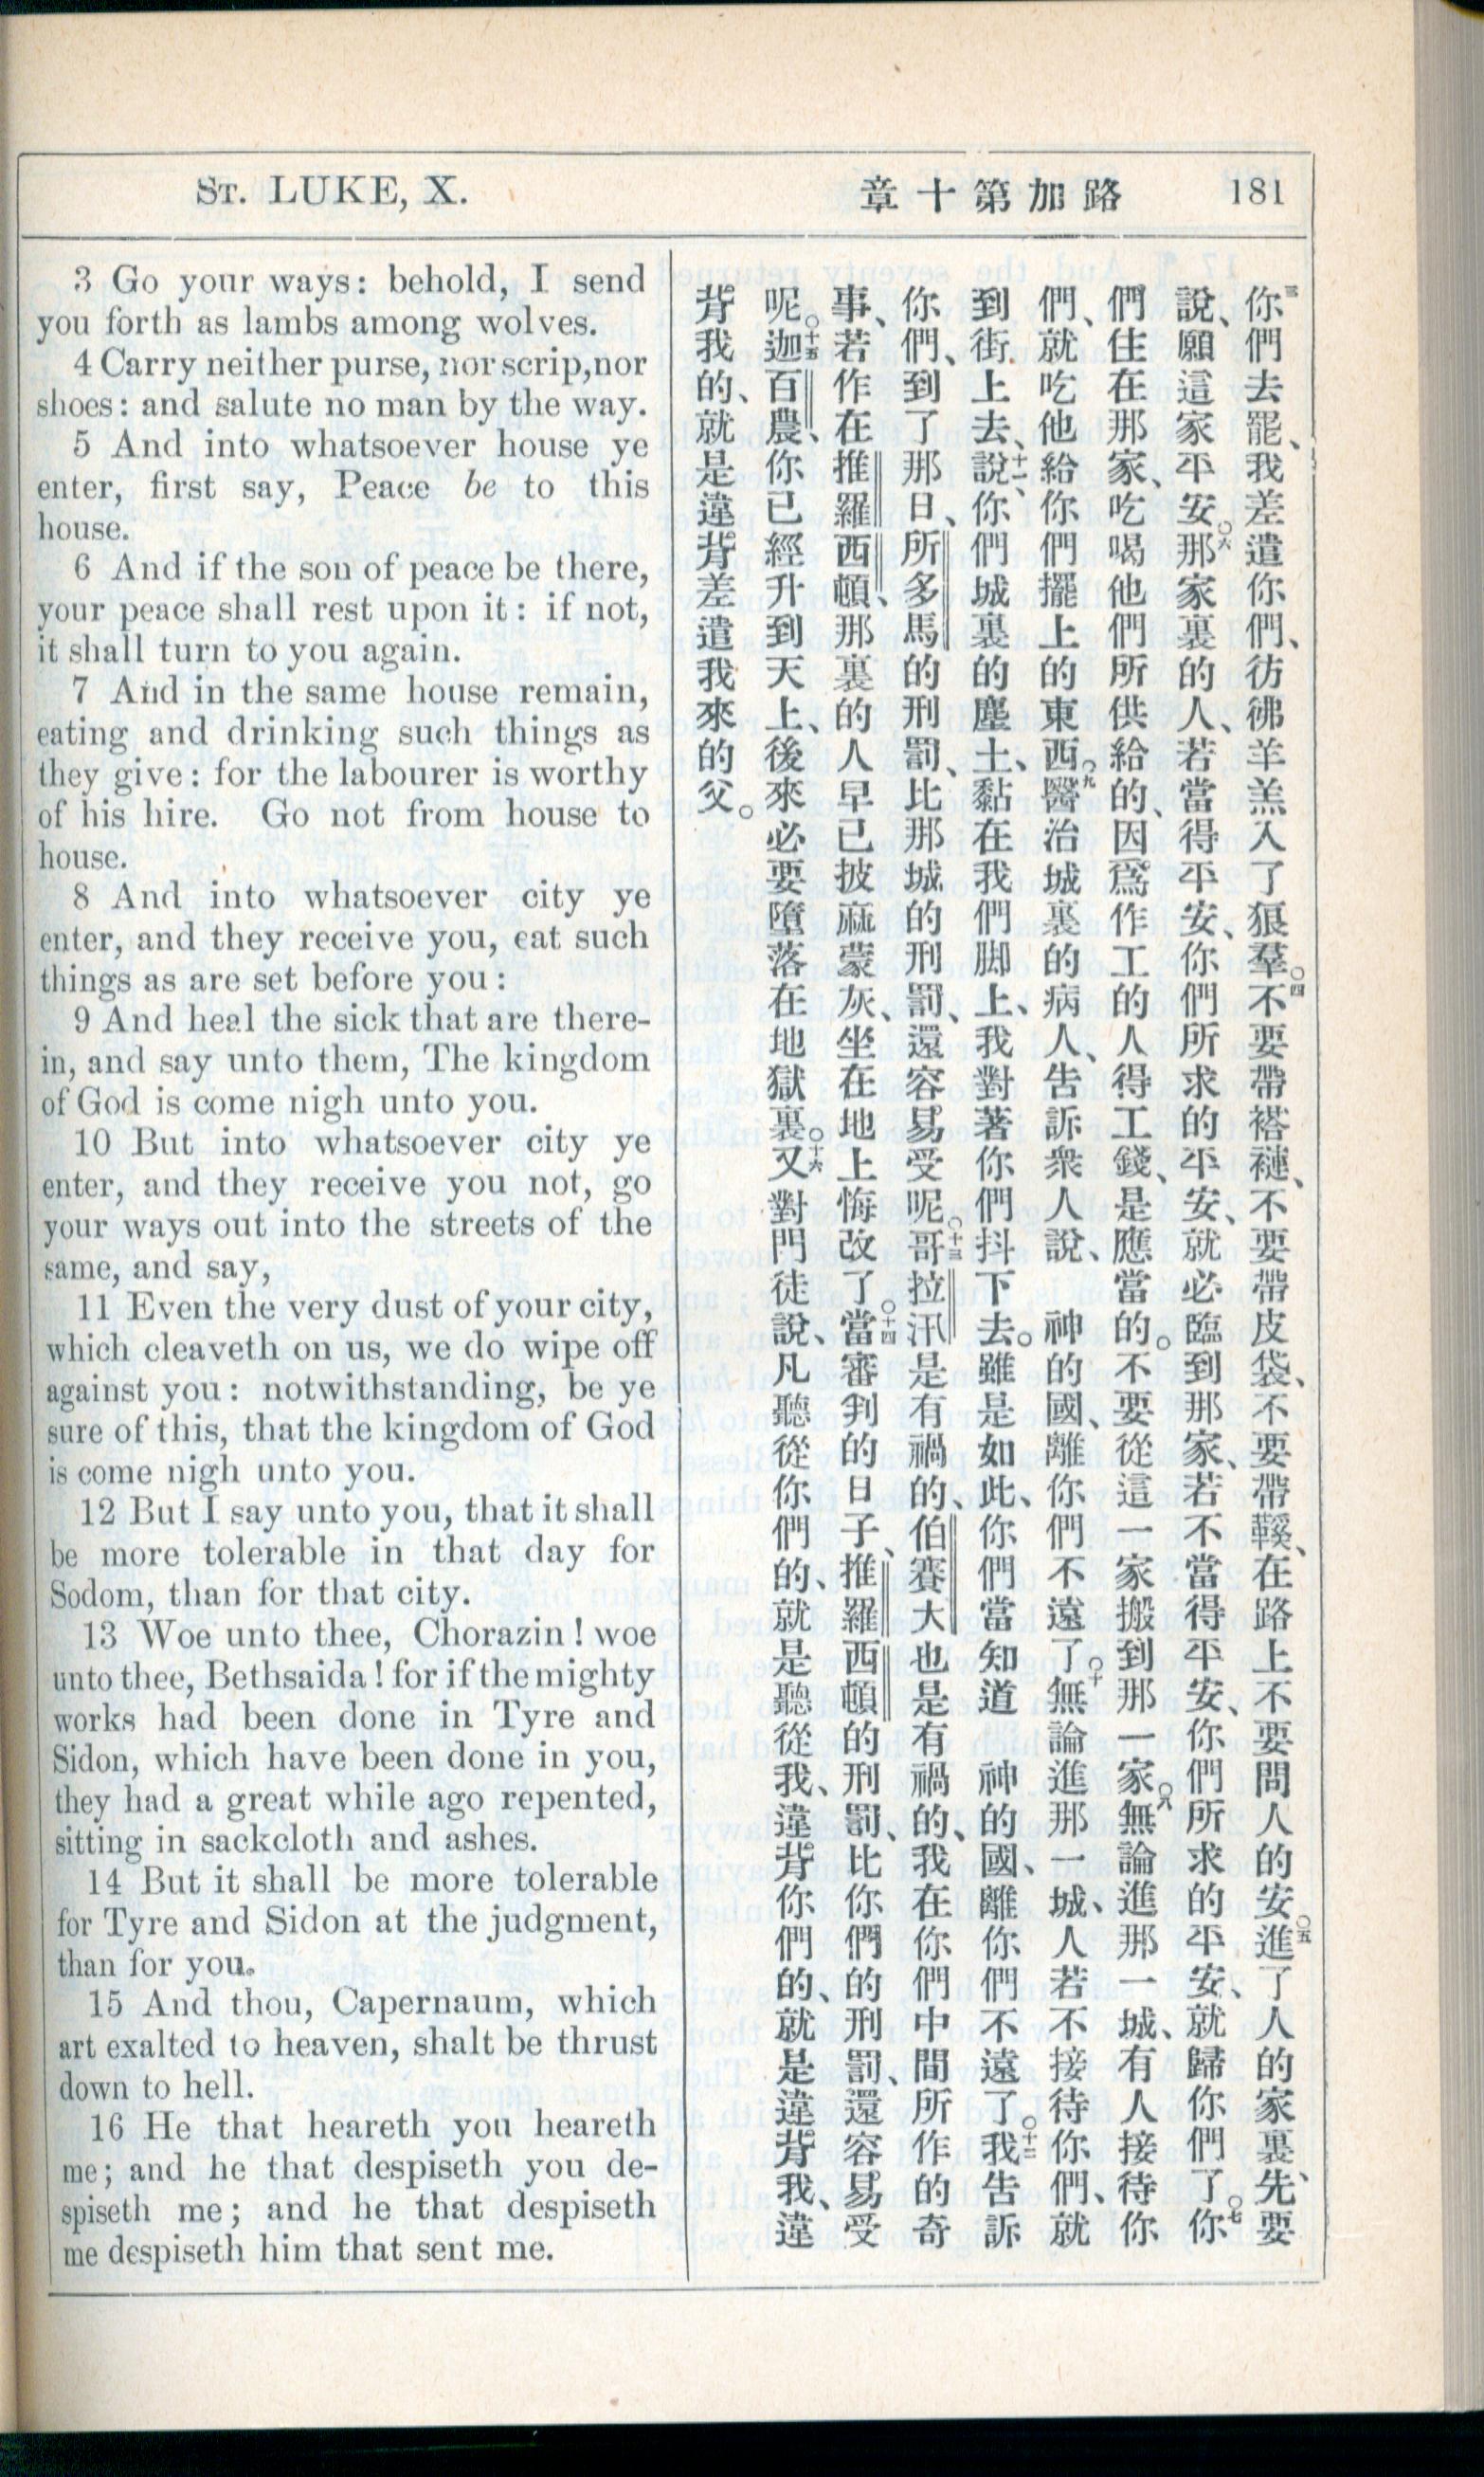 St. LUKE, X.
路加第十章
181
3 Go your ways: behold, I send
you forth as lambs among wolves.
4 Carry neither purse, nor scrip, nor
shoes: and salute no man by the way.
5 And into whatsoever house ye
enter, first say, Peace be to this
house.
6 And if the son of peace be there,
your peace shall rest upon it: if not,
it shall turn to you again.
7 And in the same house remain,
eating and drinking such things as
they give: for the labourer is worthy
of his hire. Go not from house to
house.
8 And into whatsoever city ye
enter, and they receive you, eat such
things as are set before you:
9 And heal the sick that are there-
in, and say unto them, The kingdom
of God is come nigh unto you.
10 But into whatsoever city ye
enter, and they receive you not, go
your ways out into the streets of the
same, and say,
11 Even the very dust of your city,
which cleaveth on us, we do wipe off
against you: notwithstanding, be ye
sure of this, that the kingdom of God
is come nigh unto you.
12 But I say unto you, that it shall
be more tolerable in that day for
Sodom, than for that city.
13 Woe unto thee, Chorazin! woe
unto thee, Bethsaida! for if the mighty
works had been done in Tyre and
Sidon, which have been done in you,
they had a great while ago repented,
sitting in sackcloth and ashes.
14 But it shall be more tolerable
for Tyre and Sidon at the judgment,
than for you.
15 And thou, Capernaum, which
art exalted to heaven, shalt be thrust
down to hell.
16 He that heareth you heareth
me; and he that despiseth you de-
spiseth me; and he that despiseth
me despiseth him that sent me.
三你們去罷、我差遣你們、彷彿羊羔入了狼羣。○四不要帶褡褳、不要帶皮袋、不要帶鞵、在路上不要問人的安○五進了人的家裏、先要
說、願這家平安。○六那家裏的人、若當得平安、你們所求的平安、就必臨到那家、若不當得平安、你們所求的平安、就歸你們了。○七你
們住在那家、吃喝他們所供給的、因爲作工的人得工錢、是應當的。不要從這一家搬到那一家○八無論進那一城、有人接待你
們、就吃他給你們擺上的東西○九醫治城裏的病人、告訴衆人說、 神的國、離你們不遠了○十無論進那一城、人若不接待你們、就
到街上去、十一說、你們城裏的塵土、黏在我們脚上、我對著你們抖下去。雖是如此、你們當知道 神的國、離你們不遠了。○十二我告訴
你們、到了那日、所多馬的刑罰、比那城的刑罰、還容易受呢○十三哥拉汛是有禍的、伯賽大也是有禍的、我在你們中間所作的奇
事、若作在推羅西頓、那裏的人早已披麻蒙灰、坐在地上悔改了。○十四當審判的日子、推羅西頓的刑罰、比你們的刑罰、還容易受
呢。○十五迦百農、你已經升到天上、後來必要墮落在地獄裏。○十六又對門徒說、凡聽從你們的、就是聽從我、違背你們的、就是違背我、違
背我的、就是違背差遣我來的父。